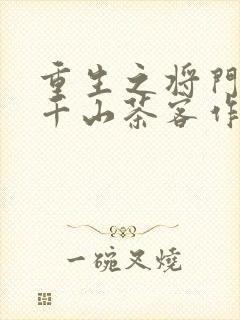 重生之将門
千山茶客作
一碗叉燒